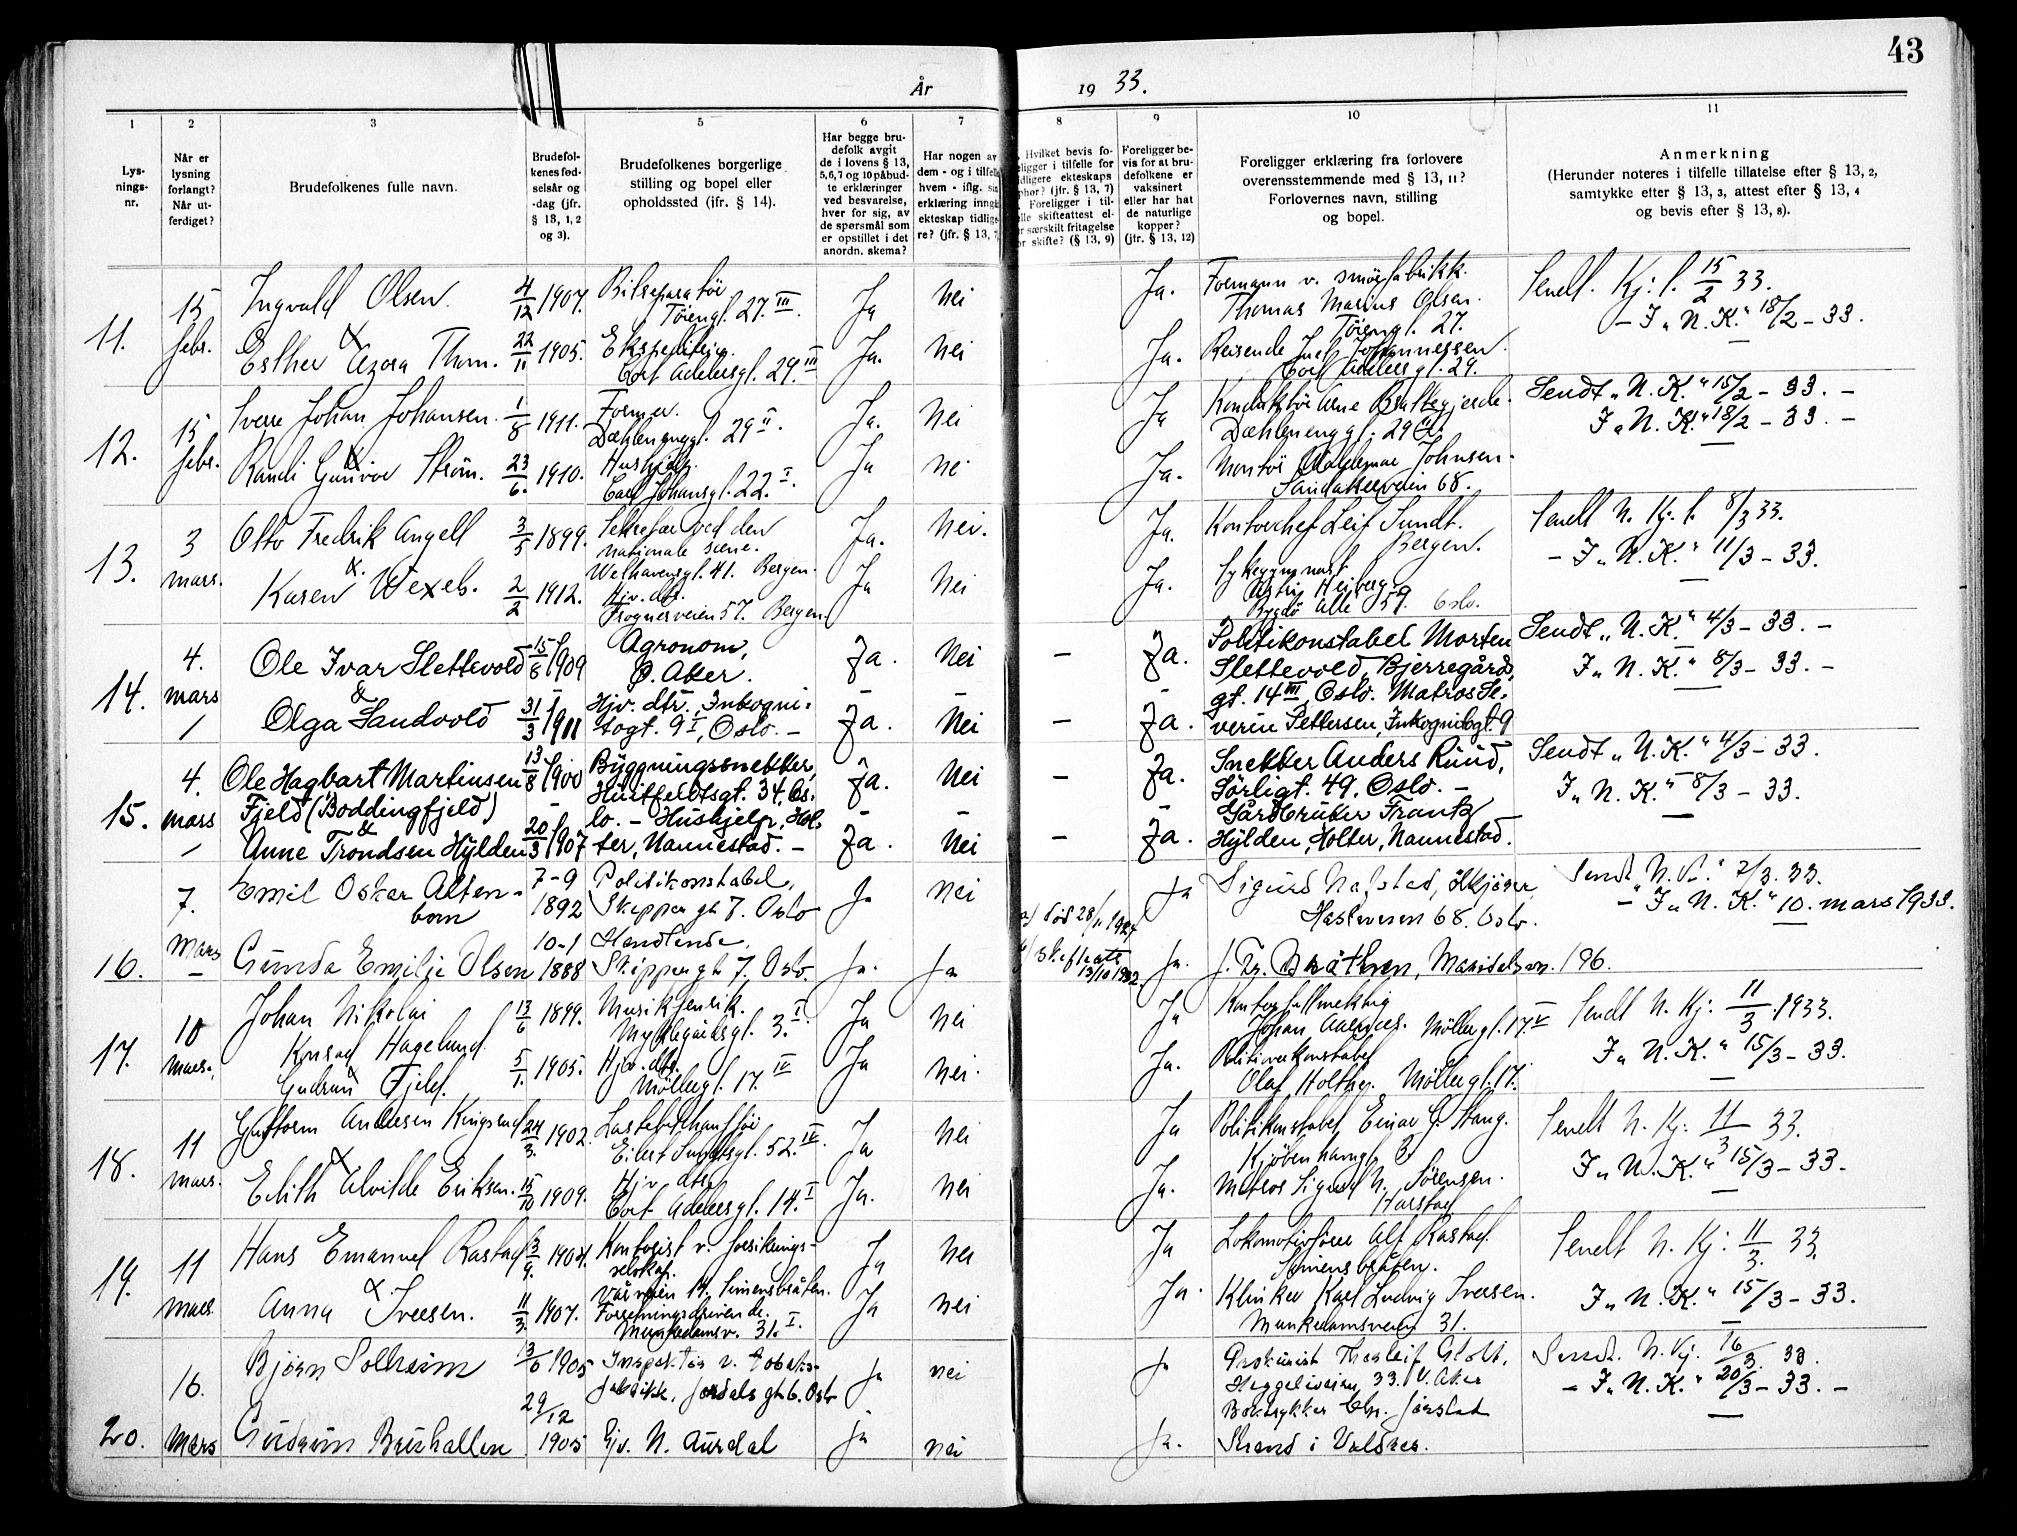 43
År 1933.
1 2 3 5 6 7 8 9 10 11
Lys-
nings-
nr.
Når er
lysning
forlangt?
Når ut-
ferdiget?
Brudefolkenes fulle navn.
Brudefol-
kenes fød-
selsår og
-dag (jfr.
§ 13, 1, 2
og 3).
Brudefolkenes borgerlige
stilling og bopel eller
opholdssted (ifr. § 14).
Har begge bru-
defolk avgit
de i lovens § 13,
5, 6, 7 og 10 påbud-
te erklæringer
ved besvarelse,
hver for sig, av
de spørsmål som
er opstillet i det
anordn. skema?
Har nogen av
dem - og i tilfelle
hvem - iflg. sin
erklæring inngå
ekteskap tidlig-
re? (jfr. § 13, 7
Hvilket bevis fo-
religger i tilfelle for
tidligere ekteskaps
ophør? (jfr. § 13, 7)
Foreligger i til-
felle skifteattest el-
r særskilt fritagelse
or skifte? (§ 13, 9)
Foreligger be-
vis for at bru-
defolkene er
vaksinert
eller har hat
de naturlige
kopper?
(jfr. § 13, 12)
Foreligger erklæring fra forlovere
overensstemmende med § 13, 11?
Forlovernes navn, stilling
og bopel.
Anmerkning
(Herunder noteres i tilfelle tillatelse efter § 13, 2,
samtykke efter § 13, 3, attest efter § 13, 4
og bevis efter § 13, 8).
11.
15
febr.
Ingvald Olsen.
4/12 1907.
Bilreparatör
Töiengt. 27. III.
Ja
Nei
Ja.
Formann v. smörfabrikk.
Thomas Marius Olsen.
Töiengt. 27.
Sendt. Kj. t. 15/2 33.
- I „N. K." 18/2 - 33.
&
Esther Azora Thom.
22/11 1905.
Ekspeditrise.
Cort Adelersgt. 29. III
Ja.
Nei
Ja.
Reisende Juel Johannessen.
Cort Adelersgt. 29.
12.
15
febr.
Sverre Johan Johansen.
1/8 1911.
Former.
Dæhlenenggt. 29 II.
Ja.
Nei
Ja
Konduktör Arne Brattegjerde.
Dæhlenenggt. 29
Sendt „N. K." 15/2 - 33. -
I „N. K." 18/2 - 33. -
&
Randi Gunvor Ström.
23/6. 1910.
Hushjelp.
Carl Johansgt. 22. I.
Ja
Nei
Ja.
Montör Valdemar Johnsen.
Sandakerveien 68.
13.
3
mars.
Otto Fredrik Angell
3/5 1899.
Sekretær ved den
nationale scene.
Welhavensgt. 41. Bergen.
Ja.
Nei.
Ja.
Kontorchef Leif Sundt.
Bergen.
Sendt N. Kj. t. 8/3 33.
- I „N. K." 11/3 - 33.
&.
Karen Wexels.
2/2 1912.
Hjv. dtr.
Frognerveien 57. Bergen
Ja
Nei
Ja.
Sykegymnast
Astrid Heiberg.
Bygdö Allé 59. Oslo.
14.
4.
mars
/
Ole Ivar Slettevold
15/8 1909
Agronom,
Ø. Aker.
Ja.
Nei
-
Ja.
Politikonstabel Morten
Slettevold, Bjerregårds-
gt. 14 III, Oslo. Matros Se-
verin Pettersen, Inkognitogt. 9
Sendt „N. K." 4/3 - 33. -
I „N. K." 8/3 - 33. -
&
Olga Sandvold
31/3 1911
Hjv. dtr., Inkogni-
togt. 9 I, Oslo. -
Ja.
Nei
-
Ja.
15.
4.
mars
/
Ole Hagbart Martinsen
Fjeld (Boddingfjeld)
13/8 1900
Byggningssnekker,
Huitfeldtsgt. 34, Os-
lo. - Hushjelp, Hol-
ter, Nannestad. -
Ja.
Nei
-
Ja.
Snekker Anders Ruud,
Sörligt. 49, Oslo. -
Gårdbruker Frantz
Hylden, Holter, Nannestad.
Sendt „N. K." 4/3 - 33.
I „N. K." 8/3 - 33.
&
Anne Trondsen Hylden
20/3 1907
Ja.
Nei
-
Ja.
16.
7.
Mars
-
Emil Oskar Alten-
born
7-9
1892
Politikonstabel,
Skippergt 7. Oslo
Ja
nei
Ja
Sigurd Nafstad,
Hasleveien 68. Oslo.
Sendt „N. K." 7/3. 33.
- I „N. K." 10. mars 1933.
Gunda Emilje Olsen
10-1
1888
Handlende.
Skippergt 7. Oslo.
Ja.
Ja
a) död 28/11 1924
b) skifteatt
13/10 1932.
Ja.
J. Fr. Bråthen, Maridalsvn. 196.
17.
10
mars.
Johan Nikolai
Konrad Hagelund.
13/6 1899.
Musikfenrik.
Myklegaardsgt. 3. I.
Ja
Nei
Ja
Kontorfullmektig
Johan Møllergt. 17. IV
Sendt N. Kj. 11/3 1933.
I „N. K." 15/3 - 33.
&
Gudrun Fjeld.
5/1. 1905.
Hjv. dtr.
Möllergt. 17. IV
Ja
Nei.
Ja.
Politioverkonstabel
Olaf Holthe. Möllergt. 17.
18.
11
mars.
Guttorm Andersen Kingsrud
24/3. 1902.
Lastebilchaufför
Eilert Sundtsgt. 52. IV.
Ja
Nei
Ja
Politikonstabel Einar G. Stang.
Kjöbenhavngt. 3.
Sendt N. Kj. 11/3 33.
I „N. K." 15/3 - 33.
&
Edith Alvilde Eriksen.
15/10 1909.
Hjv dtr.
Cort Adelersgt. 14. I
Ja.
Nei
Ja.
Matros Sigurd N. Sörensen.
Harstad
19.
11
mars.
Hans Emanuel Rastad
3/9. 1904.
Kontorist v. forsikrings-
selskap.
Vårveien 14. Simensbråten.
Ja
Nei
Ja
Lokomotivförer Alf Rastad.
Simensbråten.
Sendt N. Kj: 11/3. 33.
I „N. K." 15/3 - 33.
&
Anna Iversen.
11/3. 1907.
Forretningsdrivende.
Munkedamsv. 31. I.
Ja
nei
Ja.
Klinker Karl Ludvig Iversen.
Munkedamsveien 31.
20.
16.
Mars
Björn Solheim
13/6 1905
Inspektör v. tobaks-
fabrikk, Jordalsgt 6. Oslo
Ja
nei
Ja
Prokurist Thorleif Glott,
Heggeliveien 33. V. Aker
Sendt. N. Kj. 16/3. 33.
- I „N. K." 20/3 - 33. -
Gudrun Bruhallen
29/12
1905
Hjv. N. Aurdal
ja
nei
Ja.
Boktrykker Chr. Jörstad
Strand i Valdres.